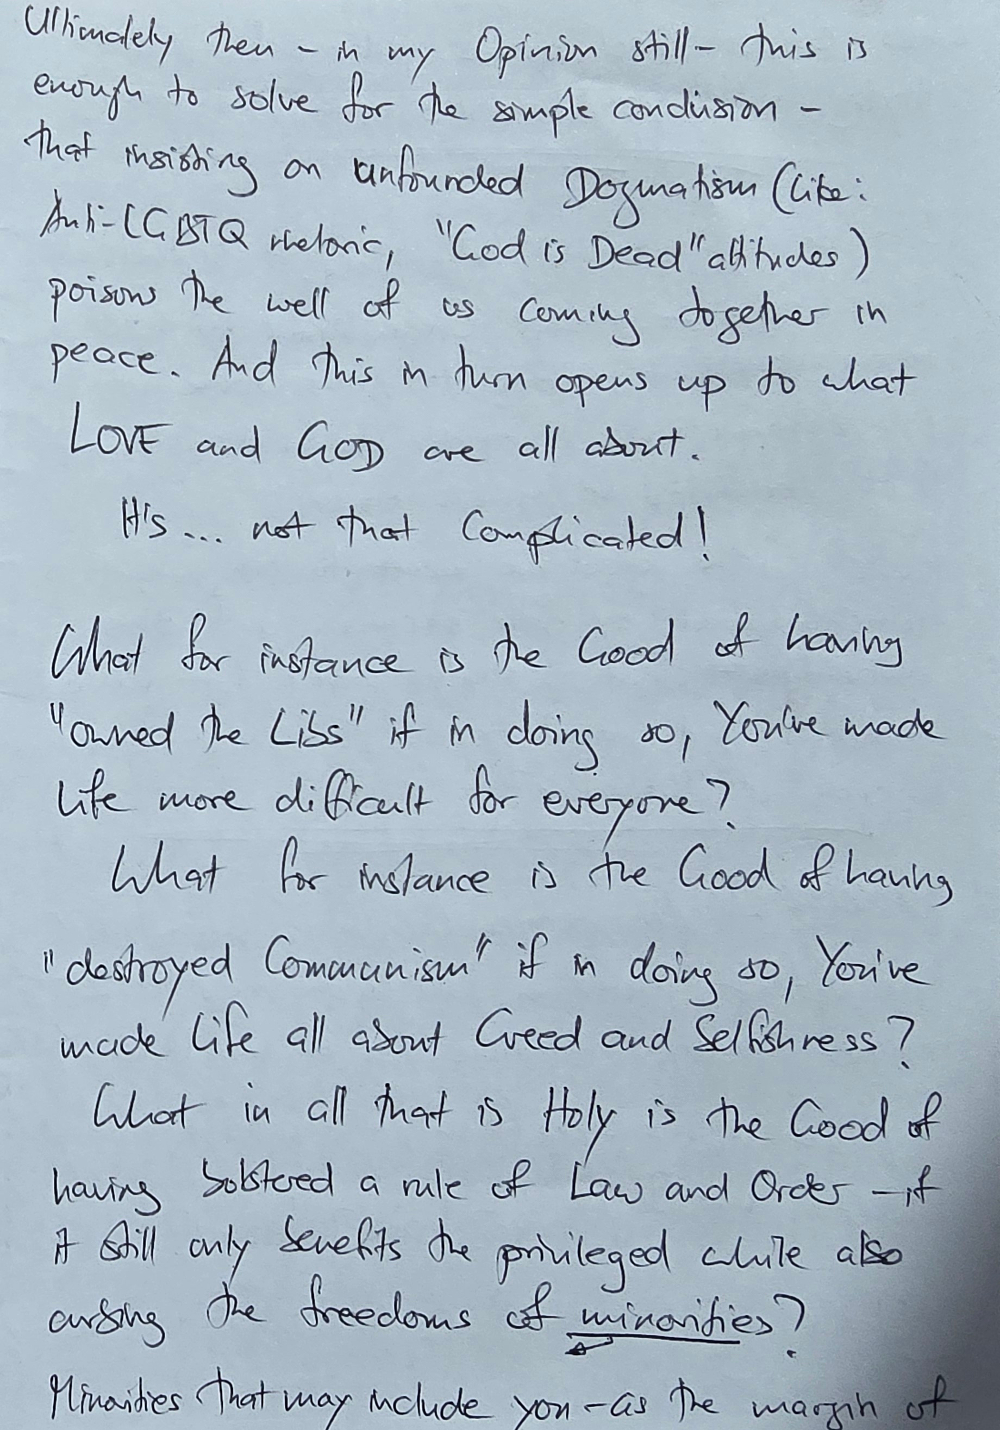 Ultimately then – in my Opinion still – this is
enough to solve for the simple conclusion –
that insisting on unfounded Dogmatism (like:
Anti-LGBTQ rhetoric, "God is Dead" attitudes)
poisons the well of us coming together in
peace. And this in turn opens up to what
LOVE and GOD are all about.
It's ... not that Complicated!
What for instance is the Good of having
"owned the Libs" if in doing so, You've made
life more difficult for everyone?
What for instance is the Good of having
"destroyed Communism" if in doing so, You've
made life all about Greed and Selfishness?
What in all that is Holy is the Good of
having bolstered a rule of Law and Order – if
it still only benefits the privileged while also
curbing the freedoms of minorities?
Minorities that may include you – as the margin of